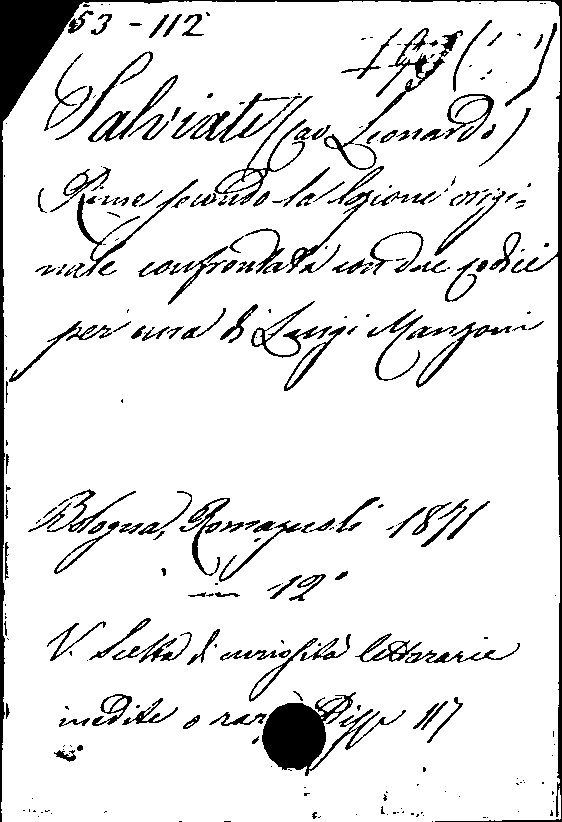 53-112
Salviati (cav Leonardo)
Rime secondo la lezione origi=
nale confrontata con due codici
per cura di Luigi Manzoni
Bologna, Romagnoli 1871
in 12°
V. Scelta di curiosità letterarie
inedite o rare Disp 117